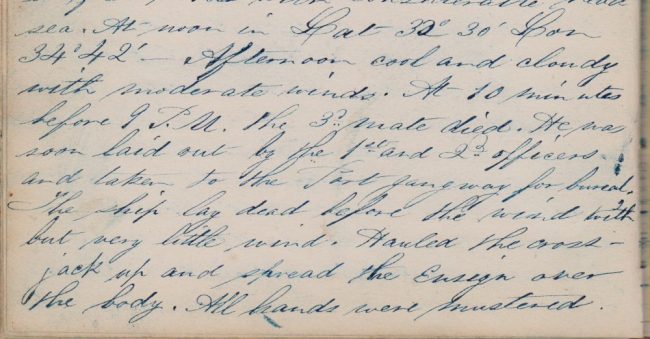 sea. At noon in Lat 32° 30' Lon
34° 42' — Afternoon cool and cloudy
with moderate winds. At 10 minutes
before 9 P.M. the 3d mate died. He was
soon laid out by the 1st and 2d officers
and taken to the Port gangway for burial.
The ship lay dead before the wind with
but very little wind. Hauled the cross-
jack up and spread the Ensign over
the body. All hands were mustered.